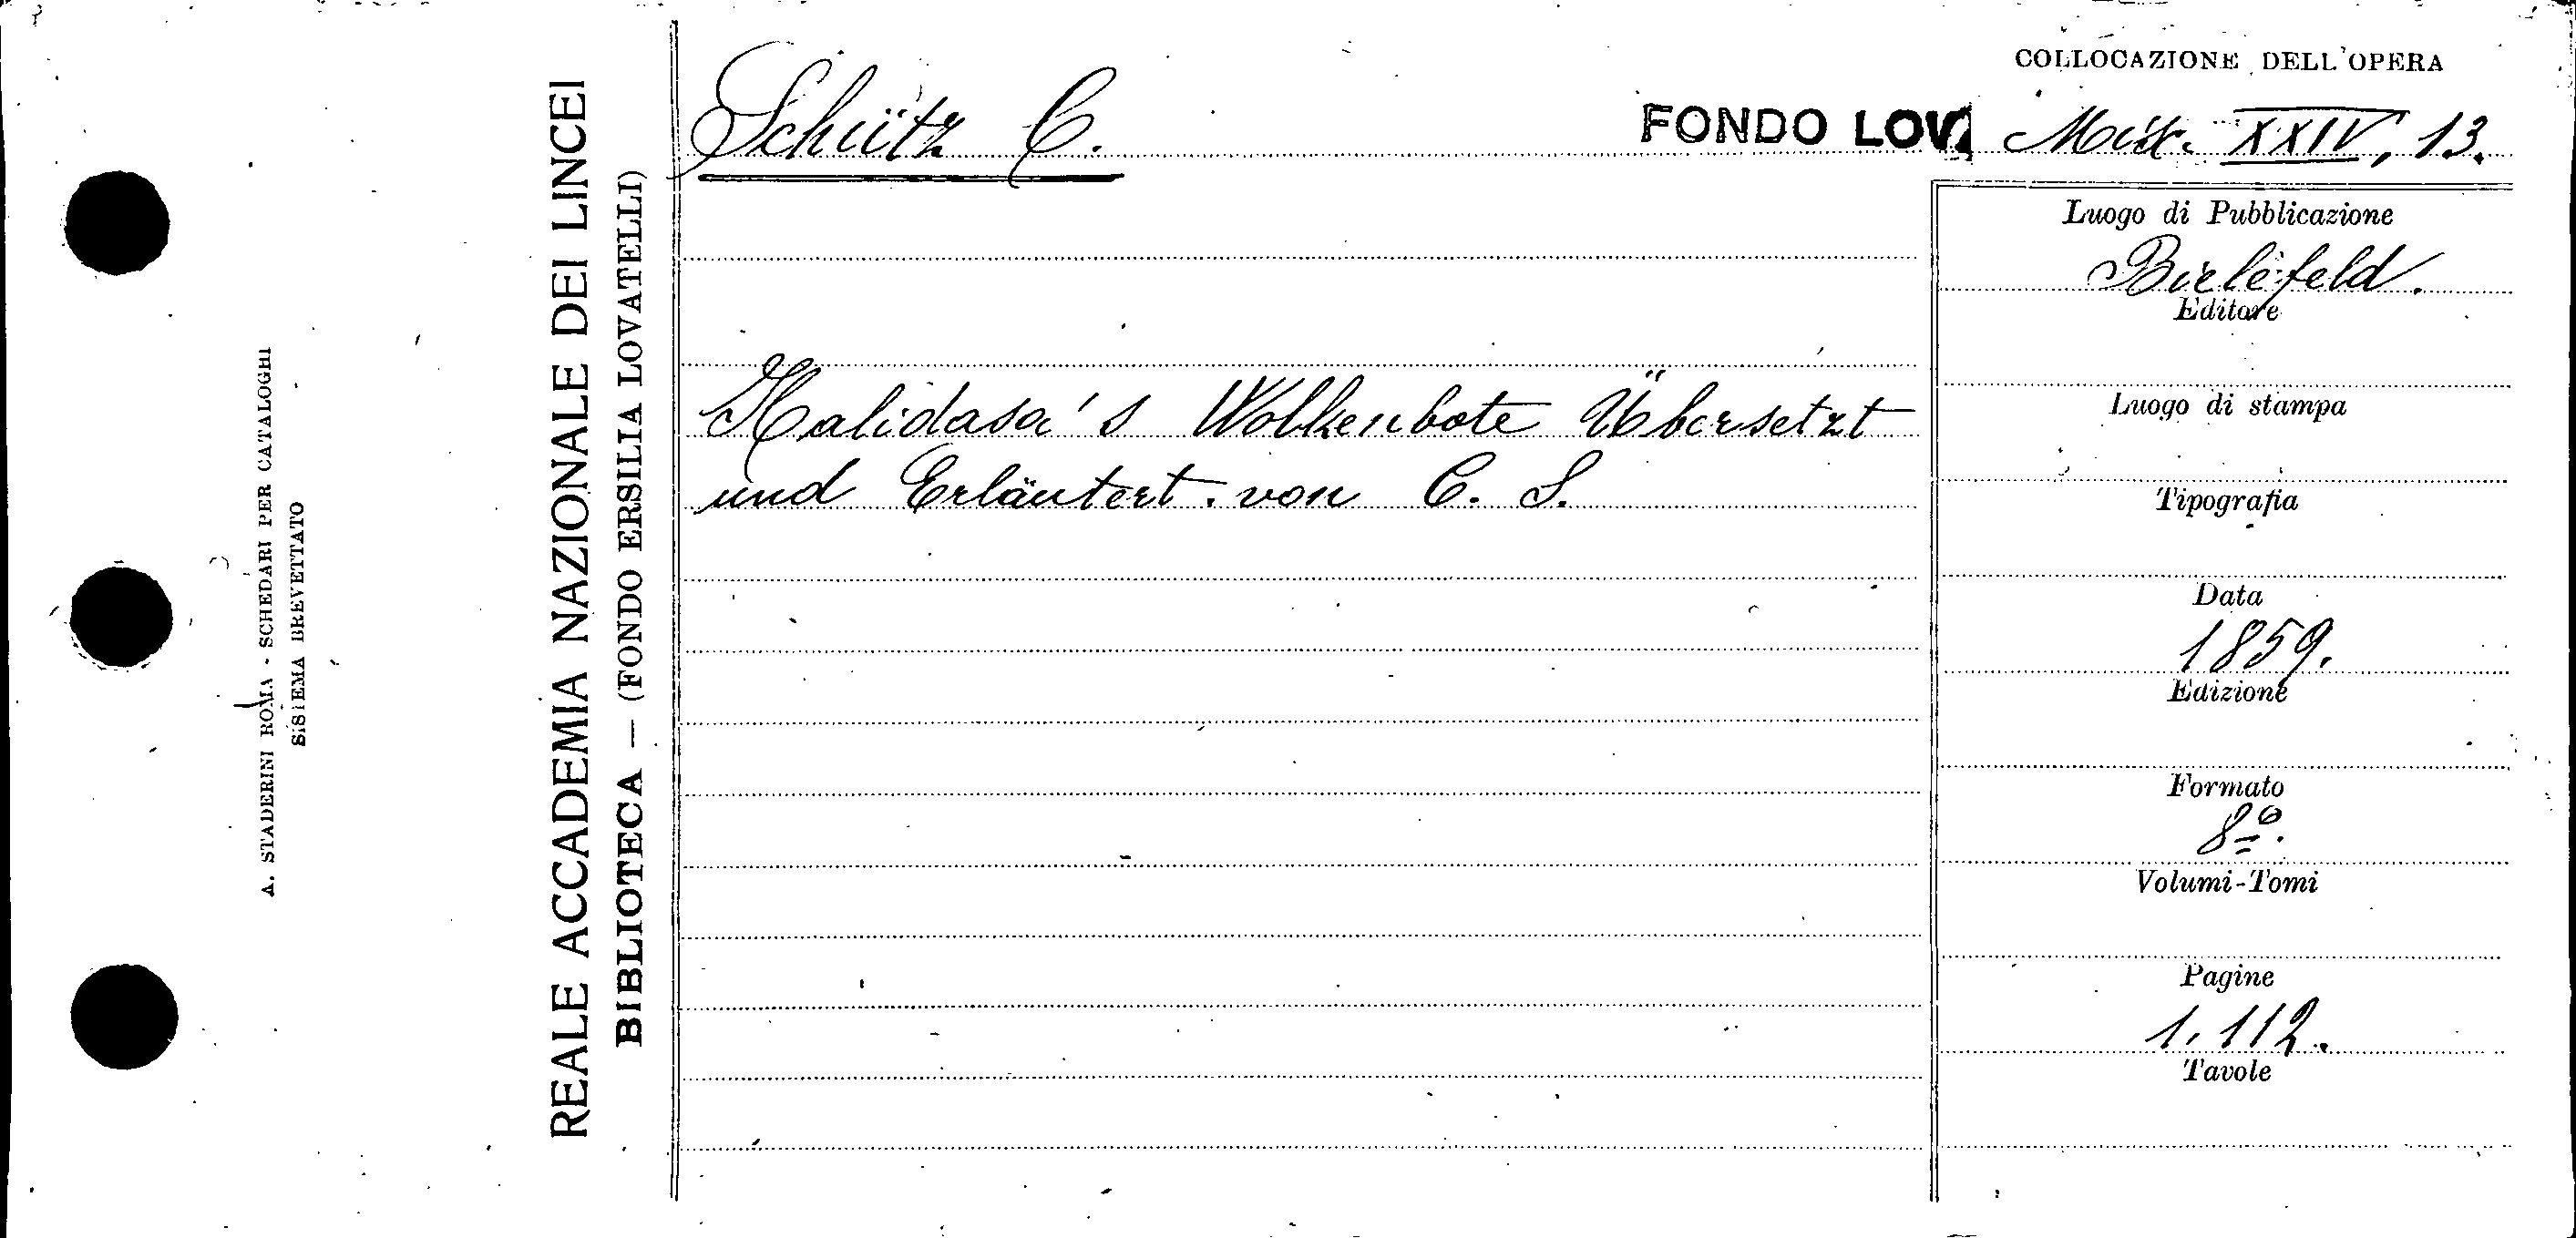 COLLOCAZIONE DELL'OPERA
Schütz C.
FONDO LOV. Misc. XXIV, 13.
Kalidasa's Wolkenbote Übersetzt
und Erläutert von C. S.
Luogo di Pubblicazione
Bielefeld.
Editore
Luogo di stampa
Tipografia
Data
1859.
Edizione
Formato
8º.
Volumi-Tomi
Pagine
1.112.
Tavole
REALE ACCADEMIA NAZIONALE DEI LINCEI
BIBLIOTECA — (FONDO ERSILIA LOVATELLI)
A. STADERINI ROMA - SCHEDARI PER CATALOGHI
SISTEMA BREVETTATO